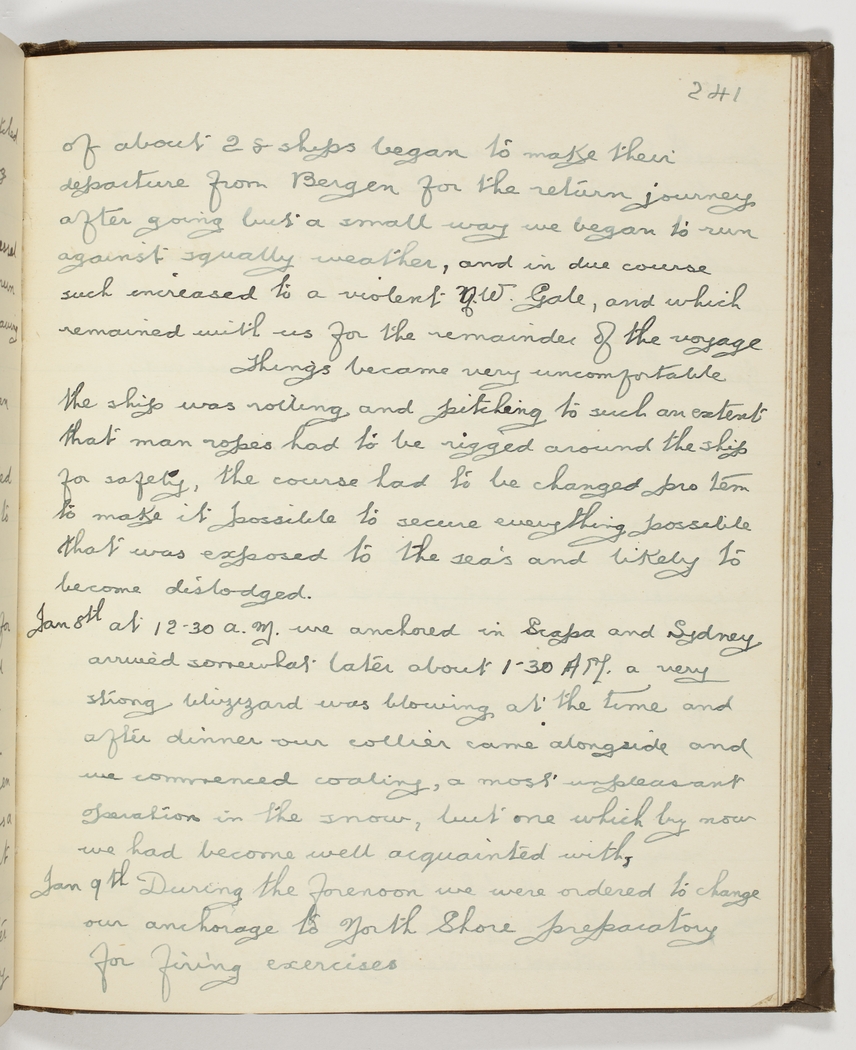 241
of about 28 ships began to make their
departure from Bergen for the return journey
after going but a small way we began to run
against squally weather, and in due course
such increased to a violent N.W. Gale, and which
remained with us for the remainder of the voyage
Things became very uncomfortable
the ship was rolling and pitching to such an extent
that man ropes had to be rigged around the ship
for safety, the course had to be changed pro tem
to make it possible to secure everything possible
that was exposed to the sea's and likely to
become dislodged.
Jan 8th at 12-30 a.m. we anchored in Scapa and Sydney
arrived somewhat later about 1-30 AM. a very
strong blizzard was blowing at the time and
after dinner our collier came alongside and
we commenced coaling, a most unpleasant
operation in the snow, but one which by now
we had become well acquainted with,
Jan 9th During the forenoon we were ordered to change
our anchorage to North Shore preparatory
for firing exercises